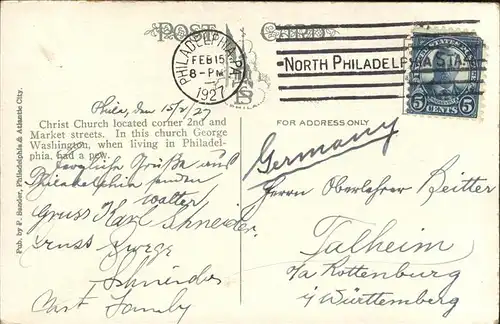 POST CARD
PHILADELPHIA, PA.
FEB 15
8-PM
1927
NORTH PHILADELPHIA STA.
5 CENTS 5
Phila, den 15/2/27
Christ Church located corner 2nd and
Market streets. In this church George
Washington, when living in Philadel-
phia, had a pew.
Pub. by P. Sander, Philadelphia & Atlantic City.
FOR ADDRESS ONLY
Germany
Herzliche Grüße aus
Philadelphia senden
Walter
Gruss Karl Schneider
Gruss
Schneider
Family
Herrn Oberlehrer Reitter
Talheim
o/a Rottenburg
i/Württemberg